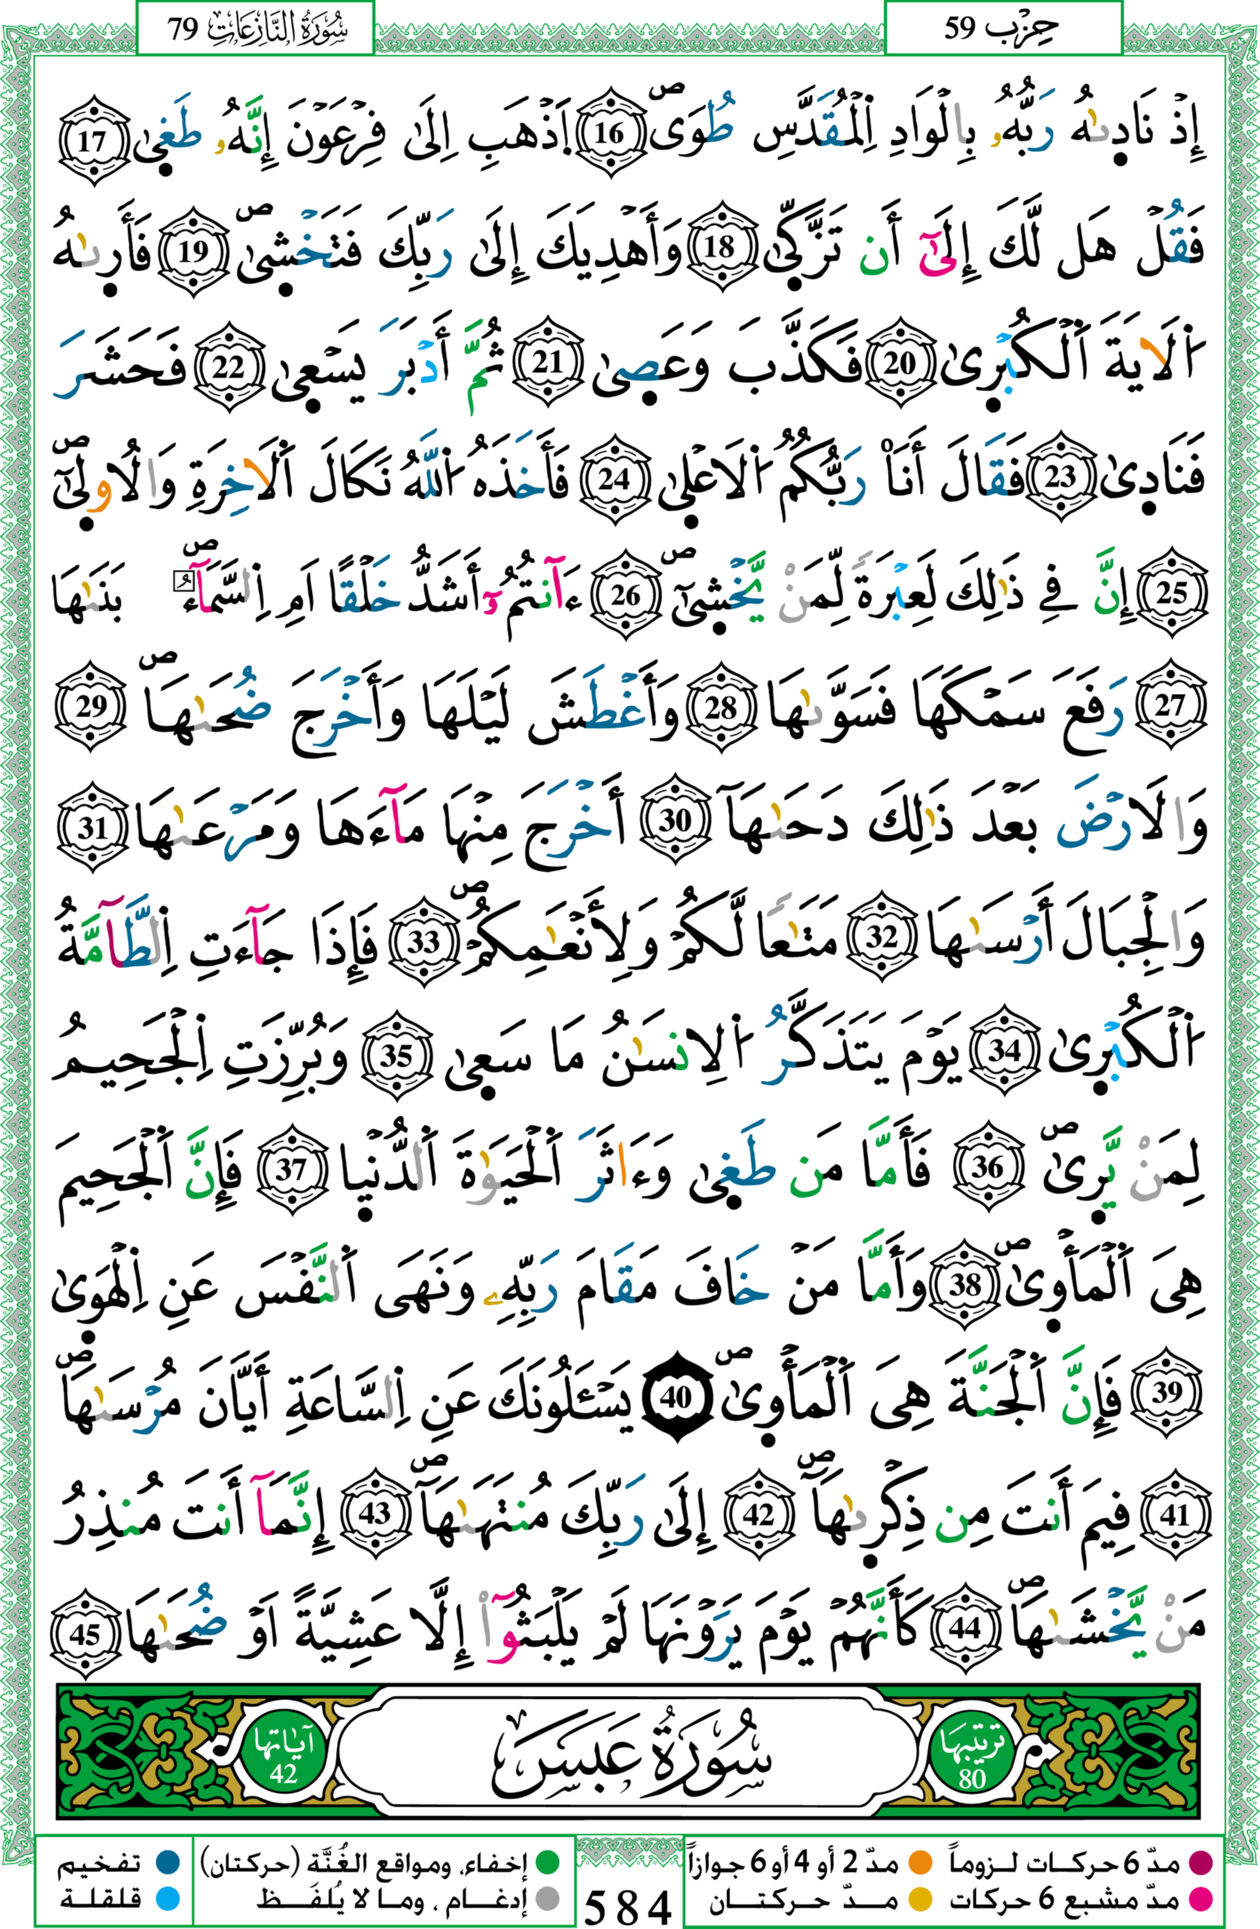 سُورَةُ النَّازِعَاتِ 79
حِزْب 59
إِذْ نَادٜىٰهُ رَبُّهُۥ بِالْوَادِ اِ۬لْمُقَدَّسِ طُوَىۖ 16 اَ۪ذْهَبِ اِلَىٰ فِرْعَوْنَ إِنَّهُۥ طَغٜىٰ 17
فَقُلْ هَل لَّكَ إِلَىٰٓ أَن تَزَّكّٜىٰ 18 وَأَهْدِيَكَ إِلَىٰ رَبِّكَ فَتَخْشٜىٰۖ 19 فَأَرٜىٰهُ
اُ۬لَايَةَ اَ۬لْكُبْرٜىٰ 20 فَكَذَّبَ وَعَصٜىٰ 21 ثُمَّ أَدْبَرَ يَسْعٜىٰ 22 فَحَشَرَ
فَنَادٜىٰ 23 فَقَالَ أَنَا۠ رَبُّكُمُ اُ۬لَاعْلٜىٰ 24 فَأَخَذَهُ اُ۬للَّهُ نَكَالَ اَ۬لَاخِرَةِ وَالُاولٜىٰٓۖ
25 إِنَّ فِے ذَٰلِكَ لَعِبْرَةٗ لِّمَنْ يَّخْشٜىٰٓۖ 26 ءَآنتُمُۥٓ أَشَدُّ خَلْقًا اَمِ اِ۬لسَّمَآءُۖ بَنَىٰهَا
27 رَفَعَ سَمْكَهَا فَسَوَّىٰهَا 28 وَأَغْطَشَ لَيْلَهَا وَأَخْرَجَ ضُحَىٰهَاۖ 29
وَالَارْضَ بَعْدَ ذَٰلِكَ دَحَىٰهَآ 30 أَخْرَجَ مِنْهَا مَآءَهَا وَمَرْعَىٰهَا 31
وَالْجِبَالَ أَرْسَىٰهَا 32 مَتَٰعاٗ لَّكُمْ وَلِأَنْعَٰمِكُمْۖ 33 فَإِذَا جَآءَتِ اِ۬لطَّآمَّةُ
اُ۬لْكُبْرٜىٰ 34 يَوْمَ يَتَذَكَّرُ اُ۬لِانسَٰنُ مَا سَعٜىٰ 35 وَبُرِّزَتِ اِ۬لْجَحِيمُ
لِمَنْ يَّرٜىٰۖ 36 فَأَمَّا مَن طَغٜىٰ وَءَاثَرَ اَ۬لْحَيَوٰةَ اَ۬لدُّنْيٜا 37 فَإِنَّ اَ۬لْجَحِيمَ
هِىَ اَ۬لْمَأْوٜىٰۖ 38 وَأَمَّا مَنْ خَافَ مَقَامَ رَبِّهِۦ وَنَهَى اَ۬لنَّفْسَ عَنِ اِ۬لْهَوٜىٰ
39 فَإِنَّ اَ۬لْجَنَّةَ هِىَ اَ۬لْمَأْوٜىٰۖ 40 يَسْـَٔلُونَكَ عَنِ اِ۬لسَّاعَةِ أَيَّانَ مُرْسَىٰهَاۖ
41 فِيمَ أَنتَ مِن ذِكْرٜىٰهَآۖ 42 إِلَىٰ رَبِّكَ مُنتَهَىٰهَآۖ 43 إِنَّمَآ أَنتَ مُنذِرُ
مَنْ يَّخْشَىٰهَاۖ 44 كَأَنَّهُمْ يَوْمَ يَرَوْنَهَا لَمْ يَلْبَثُوٓاْ إِلَّا عَشِيَّةً اَوْ ضُحَىٰهَا 45
ترتيبها 80
سُورَةُ عَبَسَ
آياتها 42
مدّ 6 حركات لـزوماً
مدّ 2 أو 4 أو 6 جوازاً
إخفاء، ومواقع الغُنَّة (حركتان)
تفخيم
مدّ مشبع 6 حركات
مــدّ حركتــان
إدغــام ، ومـا لا يُلفَـظ
قلقلـة
584